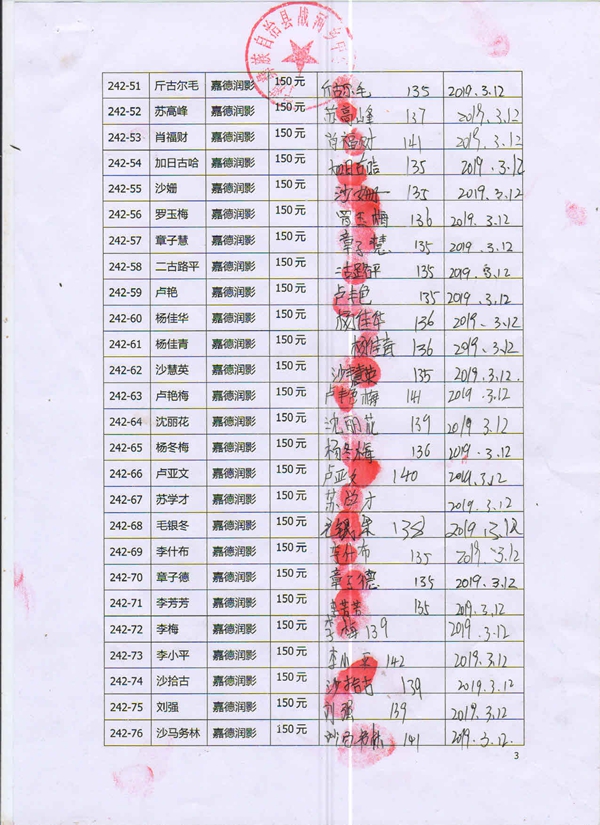 族自治县战河乡中
242-51 斤古尔毛 嘉德润影 150元 斤古尔毛 135 2019.3.12
242-52 苏高峰 嘉德润影 150元 苏高峰 137 2019.3.12
242-53 肖福财 嘉德润影 150元 肖福财 141 2019.3.12
242-54 加日古哈 嘉德润影 150元 加日古哈 135 2019.3.12
242-55 沙姗 嘉德润影 150元 沙姗 135 2019.3.12
242-56 罗玉梅 嘉德润影 150元 罗玉梅 136 2019.3.12
242-57 章子慧 嘉德润影 150元 章子慧 135 2019.3.12
242-58 二古路平 嘉德润影 150元 二古路平 135 2019.3.12
242-59 卢艳 嘉德润影 150元 卢艳 135 2019.3.12
242-60 杨佳华 嘉德润影 150元 杨佳华 136 2019.3.12
242-61 杨佳青 嘉德润影 150元 杨佳青 136 2019.3.12
242-62 沙慧英 嘉德润影 150元 沙慧英 135 2019.3.12
242-63 卢艳梅 嘉德润影 150元 卢艳梅 141 2019.3.12
242-64 沈丽花 嘉德润影 150元 沈丽花 139 2019.3.12
242-65 杨冬梅 嘉德润影 150元 杨冬梅 136 2019.3.12
242-66 卢亚文 嘉德润影 150元 卢亚文 140 2019.3.12
242-67 苏学才 嘉德润影 150元 苏学才 2019.3.12
242-68 毛银冬 嘉德润影 150元 毛银 138 2019.3.12
242-69 李什布 嘉德润影 150元 李什布 135 2019.3.12
242-70 章子德 嘉德润影 150元 章子德 135 2019.3.12
242-71 李芳芳 嘉德润影 150元 李芳芳 135 2019.3.12
242-72 李梅 嘉德润影 150元 李梅 139 2019.3.12
242-73 李小平 嘉德润影 150元 李小平 142 2019.3.12
242-74 沙拾古 嘉德润影 150元 沙拾古 139 2019.3.12
242-75 刘强 嘉德润影 150元 刘强 139 2019.3.12
242-76 沙马务林 嘉德润影 150元 沙马务林 141 2019.3.12.
3